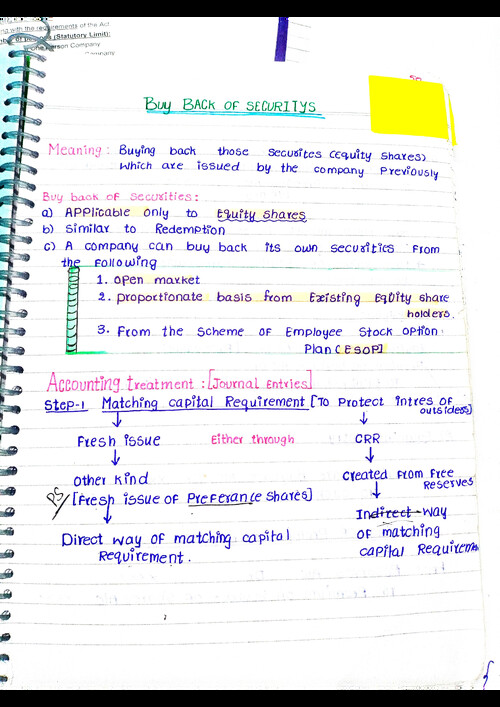 ing with the requirements of the Act
(Statutory Limit):
One Person Company
Company
BUY BACK OF SECURITYS
Meaning: Buying back those securites (Equity shares)
which are issued by the company Previously
Buy back of securities:
a) APPlicable only to Equity shares
b) Similar to Redemption
c) A company can buy back its own securitics From
the Following
1. open market
2. proportionate basis from Existing Equity share
holders.
3. From the Scheme of Employee Stock option
Plan (ESOP)
Accounting treatment: [Journal Entries]
Step-1 Matching capital Requirement [To Protect intres of
outsidess]
Fresh issue Either through CRR
Other kind Created From Free
Reserves
PS/ [Fresh issue of Preferance shares]
Indirect way
Direct way of matching capital of matching
Requirement. capital Requirement